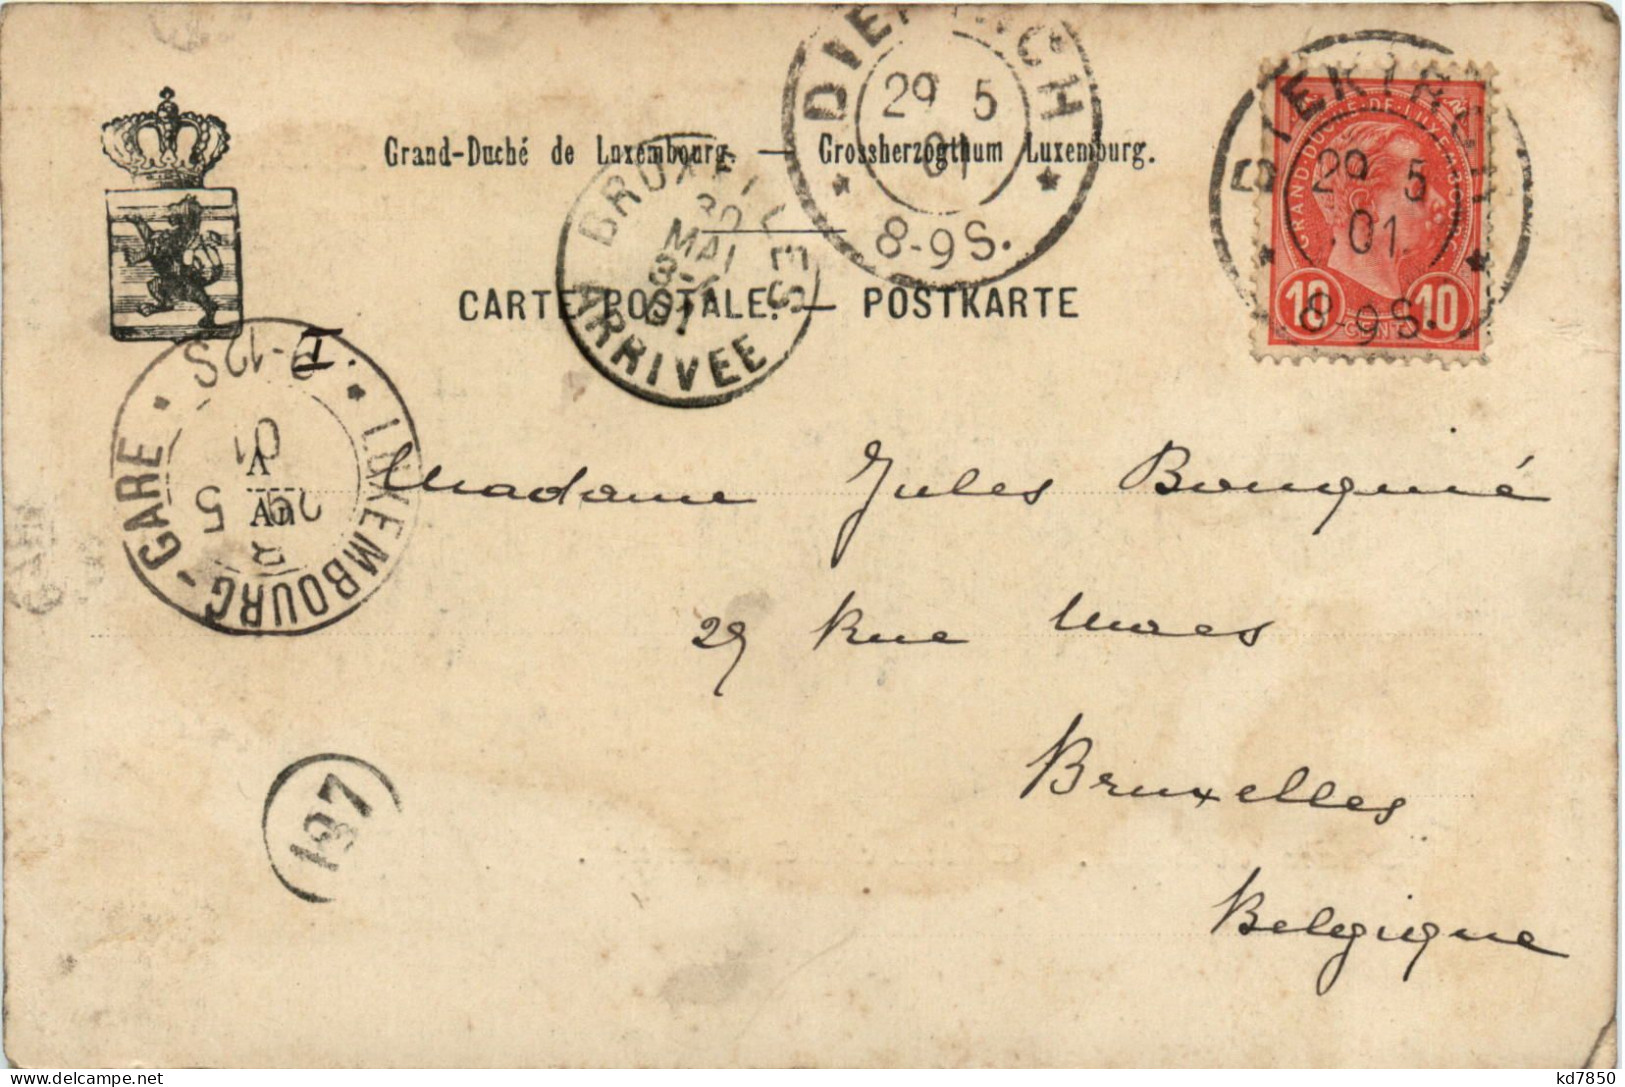 Grand-Duché de Luxembourg. — Grossherzogthum Luxemburg.
CARTE POSTALE. — POSTKARTE
DIEKIRCH
29 5
01
8-9S.
DIEKIRCH
29 5
01.
8-9S.
GRAND-DUCHÉ-DE-LUXEMBOURG
10 10
CENT
BRUXELLES
30
MAI
01
ARRIVEE
LUXEMBOURG-GARE
29 5
01
-12S
Madame Jules Bouquié
29 Rue Maes
Bruxelles
Belgique
187
kd7850